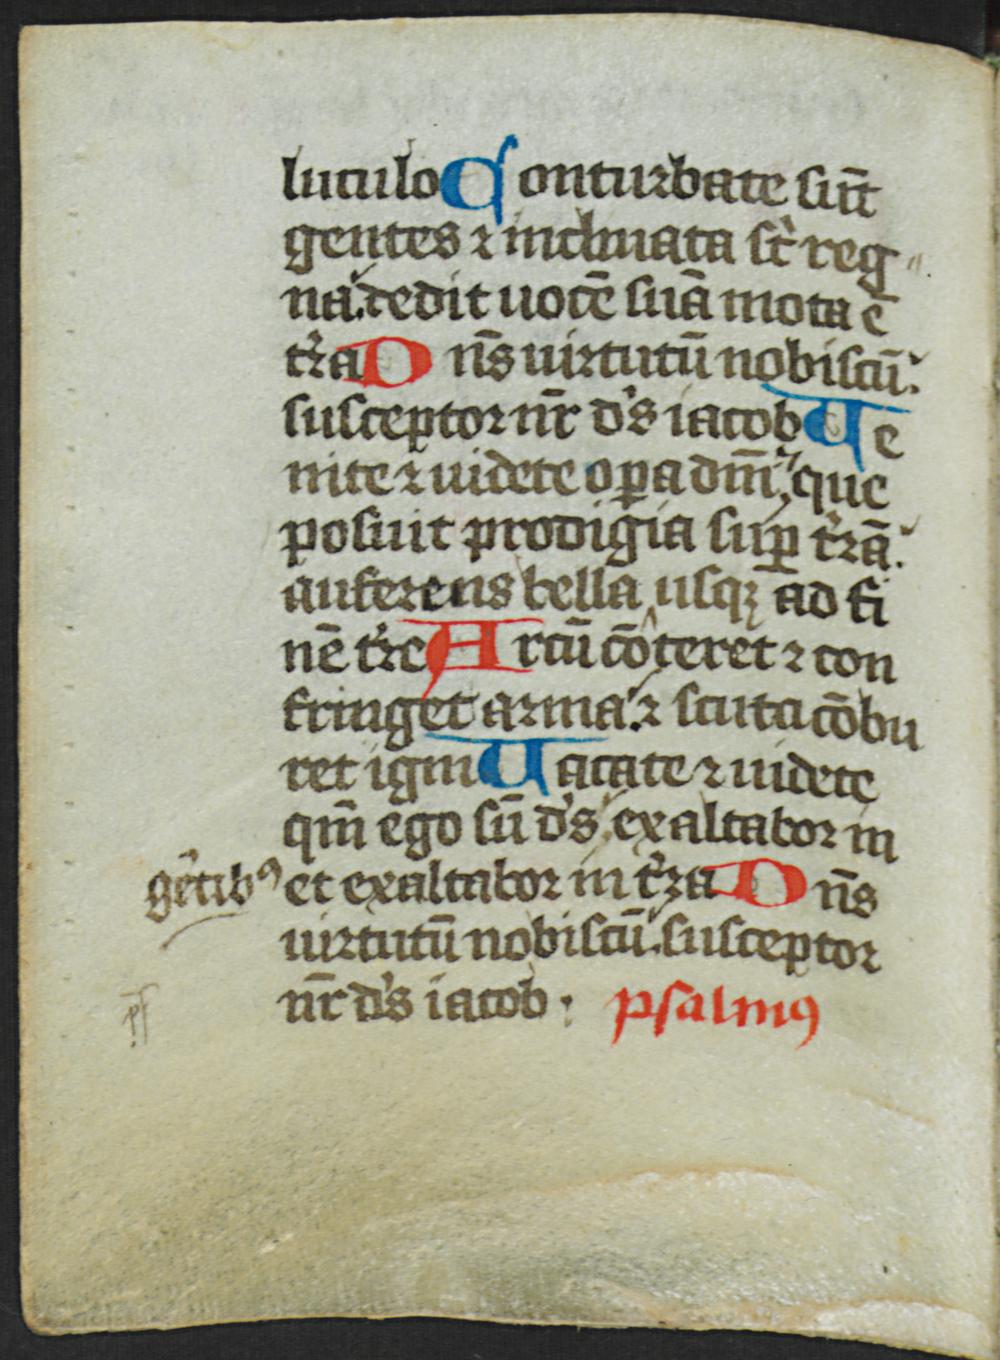 luculo Conturbate sūt
gentes ⁊ inclinata st̄ reg
na. dedit uocē suā mota ē
tr̄a Dn̄s uirtutū nobiscū.
susceptor nr̄ ds̄ iacob Ue
nite ⁊ uidete oꝑa dn̄i, que
posuit prodigia suꝑ tr̄rā.
auferens bella usqꝫ ad fi
nē tr̄re Arcū cōteret ⁊ con
fringet arma. ⁊ scuta cōbu
ret igni Uacate ⁊ uidete
qm̄ ego sū ds̄ exaltabor in
gētibꝰ et exaltabor in tr̄ra Dn̄s
uirtutū nobiscū. susceptor
nr̄ ds̄ iacob. psalmꝰ
ps̄